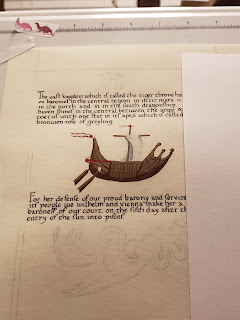 The east kingdom which is called the tiger throne ha
vii baronies in the central region in its myra vi
in the north and vi in the south dragonship
haven shines in the central between the argo a
poet of south one star in its apex which is called
bronwen rose of greyling.
For her defense of our proud barony and service
its people we wilhelm and vienna make her a
baroness of our court on the fifth day after th
entry of the sun into pisces